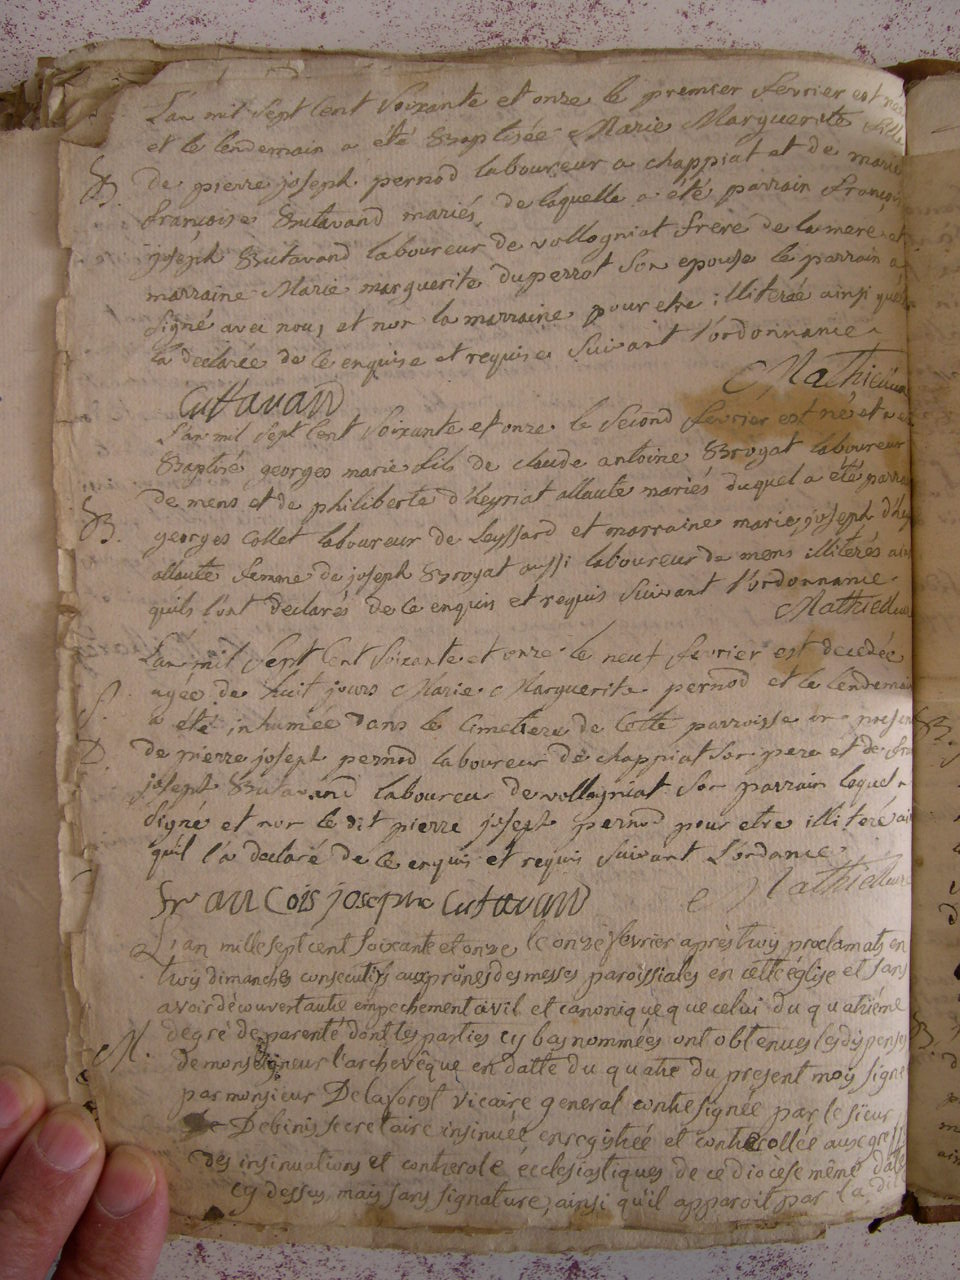 L'an mil sept cent soixante et onze le premier fevrier est née
et le lendemain a été Baptisée Marie Marguerite fille
B. de pierre joseph pernod laboureur a chappiat et de marie
françoise Butavand mariés, de laquelle a été parrain françois
joseph Butavand laboureur de vollogniat frere de la mere et
marraine Marie marguerite duperrot son epouse le parrain a
signé avec nous et non la marraine pour etre illiterée ainsi quelle
la declarée de ce enquise et requise suivant l'ordonnance
Cuttavand Mathieu
L'an mil sept cent soixante et onze le second fevrier est né et a été
Baptisé georges marie fils de claude antoine Brogat laboureur
de mens et de philiberte d'heyriat allaute mariés duquel a été parrain
B. georges Collet laboureur de Leyssard et marraine marie joseph
allaute femme de joseph Brogat aussi laboureur de mens illiterés
quils l'ont declarés de ce enquis et requis suivant l'ordonnance
Mathieu
L'an mil sept cent soixante et onze le neuf fevrier est decedée
agée de huit jours Marie Marguerite pernod et le lendemain
S. a été inhumée dans le cimetiere de cette parroisse en presence
D. de pierre joseph pernod laboureur de chappiat son pere et de
joseph Butavand laboureur de vollogniat son parrain lequel a
signé et non le dit pierre joseph pernod pour etre illiteré
quil l'a declaré de ce enquis et requis suivant L'ordance
francois joseph Cutavand Mathieu
L'an mille sept cent soixante et onze le onze fevrier après troy proclamats en
troy dimanches consecutifs aux prônes des messes paroissiales en cette église et sans
avoir découvert autre empechement civil et canonique que celui du quatrième
M. degré de parenté dont les parties cy bas nommées ont obtenues les dispenses
de monseigneur l'archevêque en datte du quatre du present moy signé
par monsieur Delaforest vicaire general contresignée par le sieur
De Debinis secretaire insinuée enregistrée et controollée aux greffes
des insinuations et controle écclesiastiques de ce diocese même date
cy dessus mais sans signature, ainsi qu'il apparoit par la dit